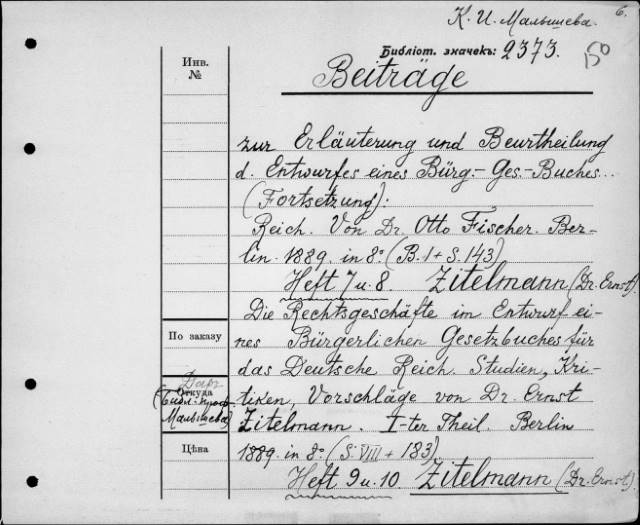 6.
К. И. Малышева.
Библіот. значекъ: 2373.
150
Инв.
№
Beiträge
zur Erläuterung und Beurtheilung
d. Entwurfes eines Bürg.- Ges.-Buches...
(Fortsetzung):
Reich. Von Dr. Otto Fischer. Ber-
lin. 1889. in 8º (B. 1 + S. 143)
Heft 7 u. 8. Zitelmann (Dr. Ernst).
Die Rechtsgeschäfte im Entwurf ei-
nes Bürgerlichen Gesetzbuches für
das Deutsche Reich. Studien, Kri-
tiken, Vorschläge von Dr. Ernst
Zitelmann. I-ter Theil. Berlin
1889. in 8º (S. VIII + 183)
Heft 9 u. 10. Zitelmann (Dr. Ernst).
По заказу
Даръ
Откуда
(Библ. проф.
Малышева)
Цѣна